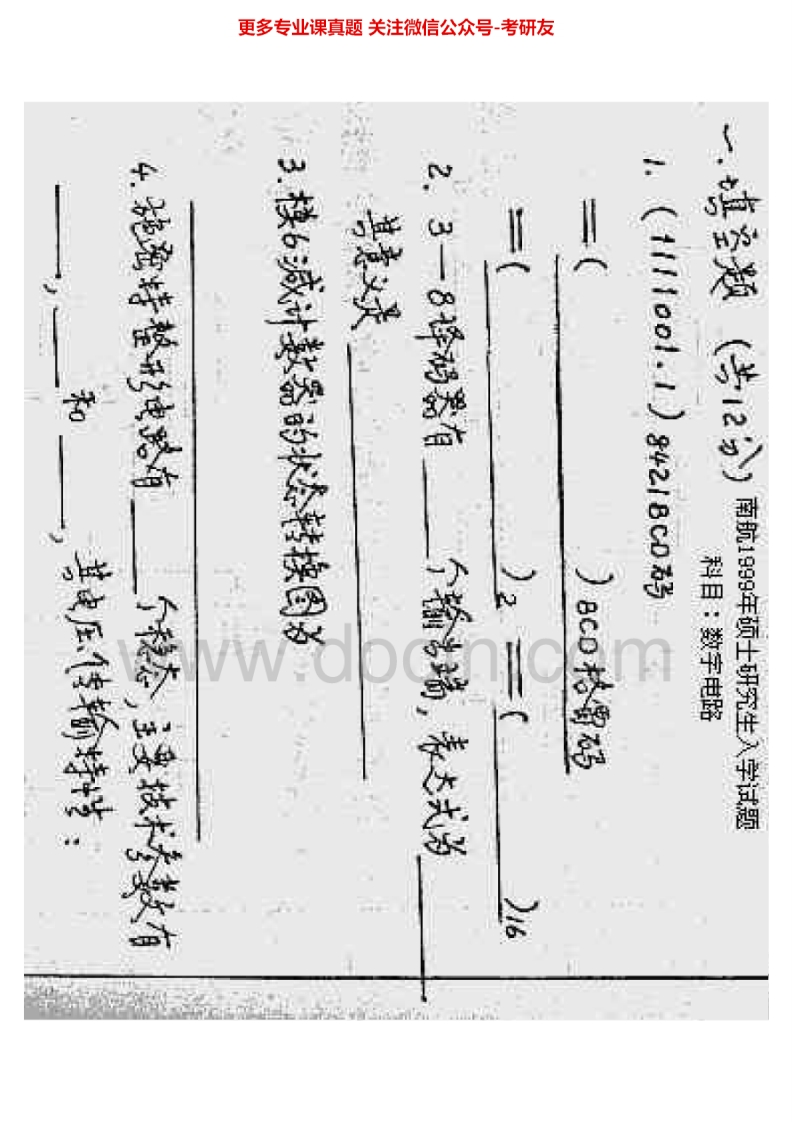 更多专业课真题 关注微信公众号-考研友
南航1999年硕士研究生入学试题
科目：数字电路
一. 填空题 (共12分)
1. (1111001.1) 8421BCD码
=( ____ )BCD格雷码
=( ____ )2 =( ____ )16
2. 3—8译码器有 ____ 个输出端, 表达式为 ____
其意义是 ____
3. 模6减计数器的状态转换图为
____
4. 施密特整形电路有 ____ 个稳态, 主要技术参数有
____, ____ 和 ____, 其电压传输特性:
www.docin.com